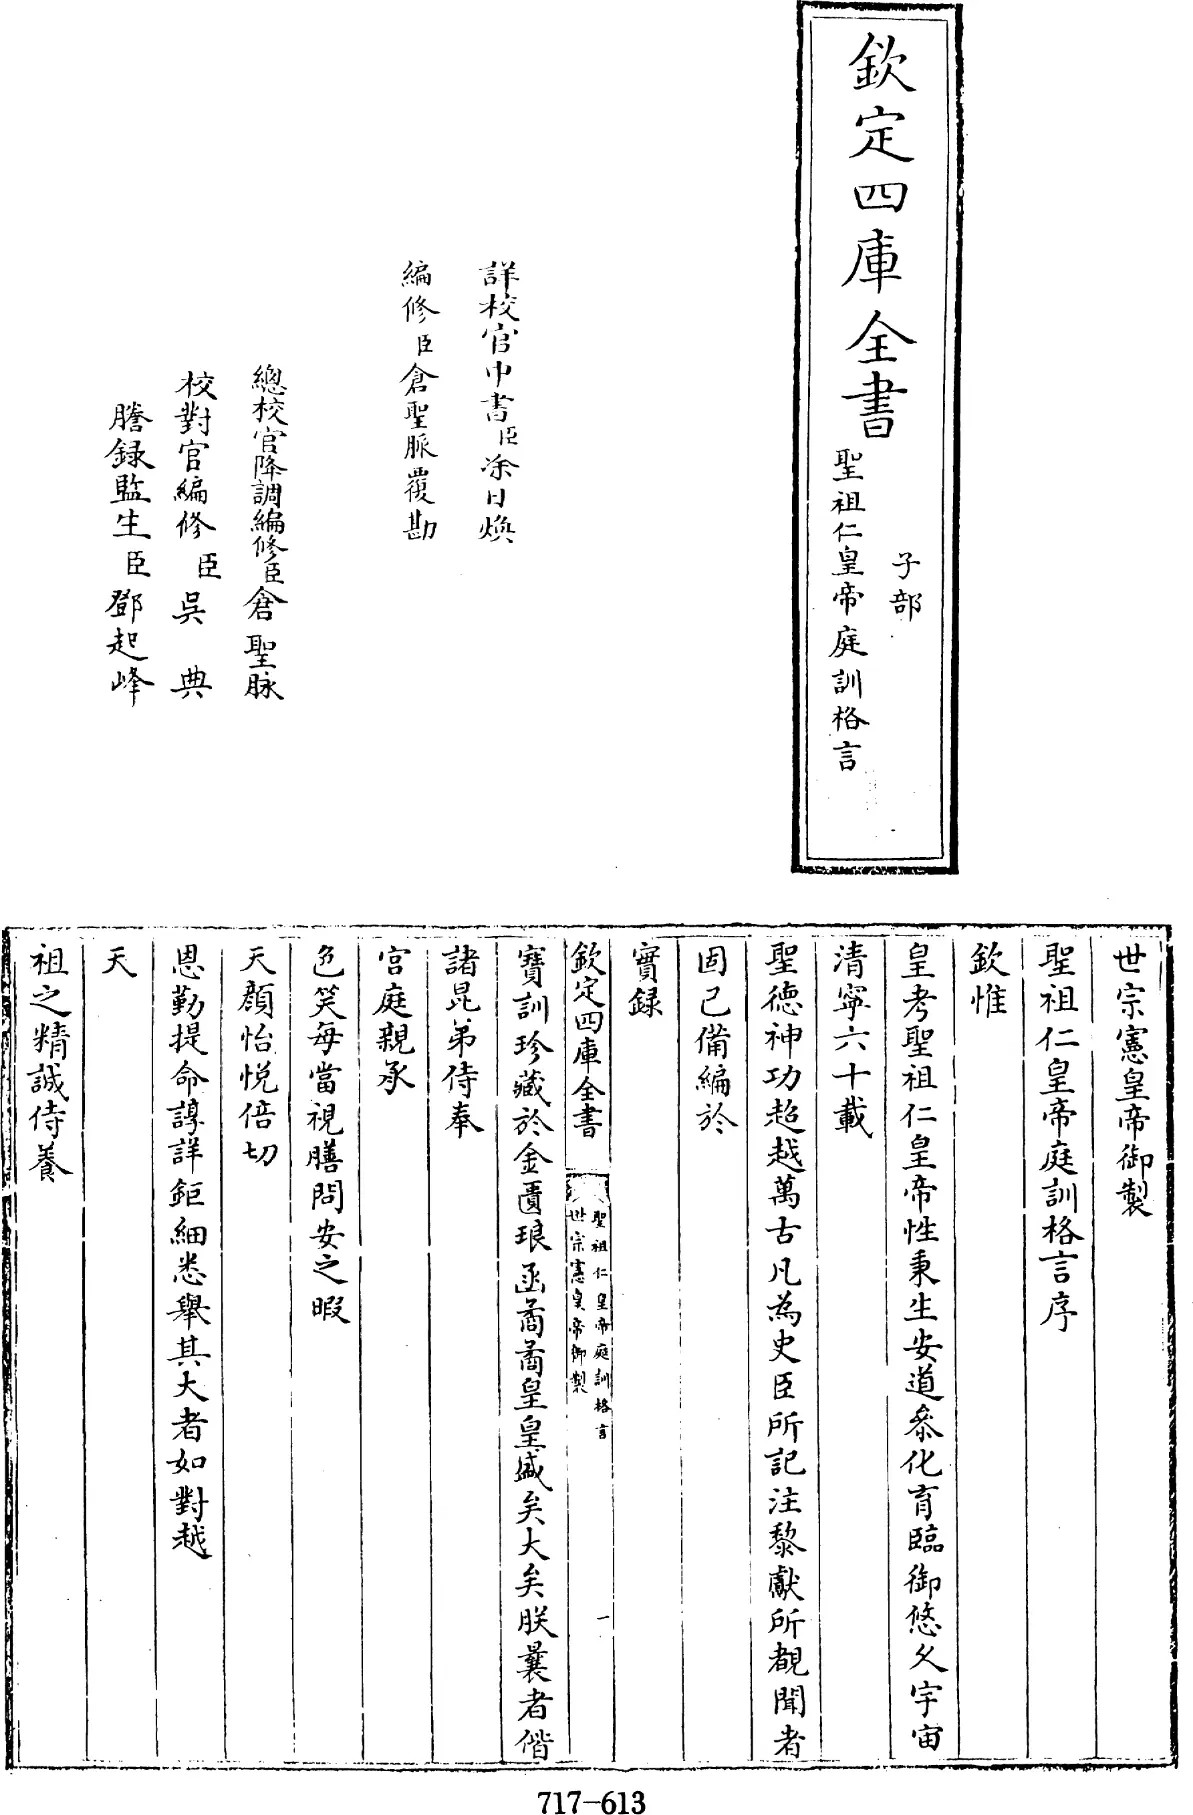 欽定四庫全書
子部
聖祖仁皇帝庭訓格言
詳校官中書臣凃日煥
編修臣倉聖脈覆勘
總校官降調編修臣倉聖脉
校對官編修臣吳典
謄録監生臣鄧起峰
世宗憲皇帝御製
聖祖仁皇帝庭訓格言序
欽惟
皇考聖祖仁皇帝性秉生安道叅化育臨御悠久宇宙
清寧六十載
聖德神功超越萬古凡為史臣所記注黎獻所覩聞者
固已備編於
實録
欽定四庫全書
聖祖仁皇帝庭訓格言
世宗憲皇帝御製
一
寶訓珍藏於金匱琅函矞矞皇皇盛矣大矣朕曩者偕
諸昆弟侍奉
宫庭親承
色笑每當視膳問安之暇
天顔怡悅倍切
恩勤提命諄詳鉅細悉舉其大者如對越
天
祖之精誠侍養
717-613